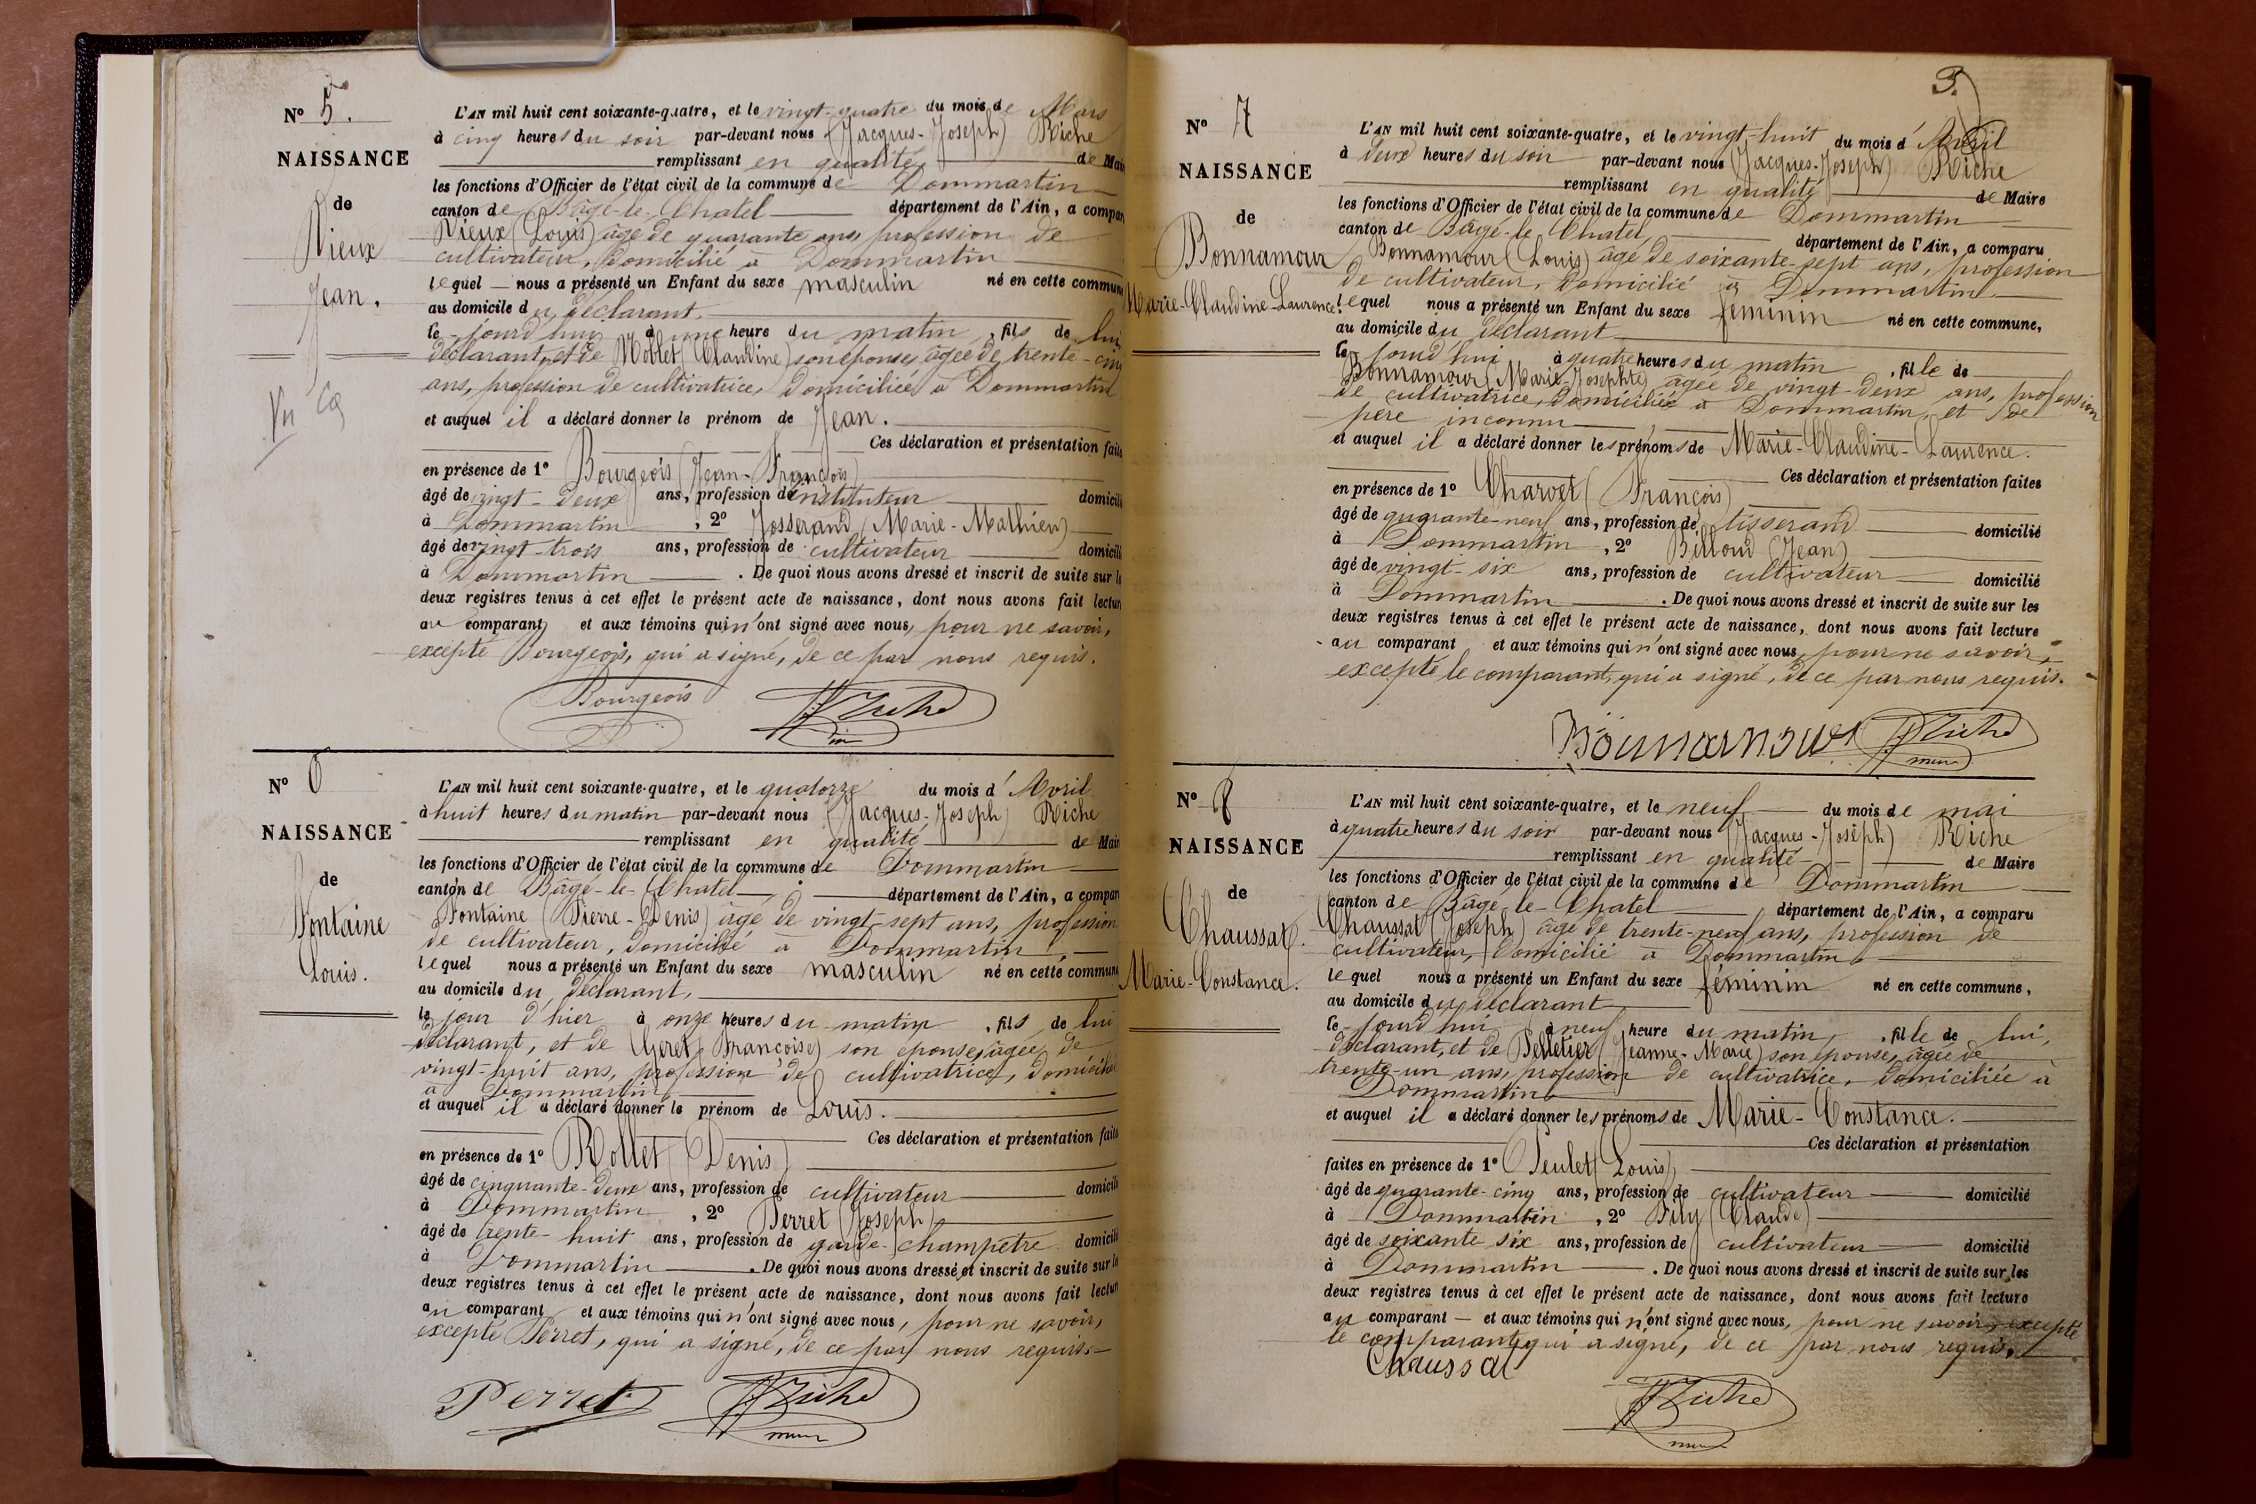 Nº 5.
NAISSANCE
de
Vieux
Jean.
Vu
L'AN mil huit cent soixante-quatre, et le vingt-quatre du mois de Mars
à cinq heures du soir par-devant nous (Jacques-Joseph) Riche
remplissant en qualité de Mai
les fonctions d'Officier de l'état civil de la commune de Dommartin
canton de Bâgé-le-Chatel département de l'Ain, a compar
Vieux (Louis) âgé de quarante ans, profession de
cultivateur, domicilié à Dommartin
lequel nous a présenté un Enfant du sexe masculin né en cette commune
au domicile du déclarant.
le jourd'hui à une heure du matin, fils de lui
déclarant, et de Moblet (Claudine) son épouse, âgée de trente-cinq
ans, profession de cultivatrice, domiciliée à Dommartin
et auquel il a déclaré donner le prénom de Jean.
Ces déclaration et présentation faite
en présence de 1º Bourgeois (Jean-François)
âgé de vingt-deux ans, profession d'instituteur domicili
à Dommartin, 2º Josserand (Marie-Mathieu)
âgé de vingt-trois ans, profession de cultivateur domicili
à Dommartin. De quoi nous avons dressé et inscrit de suite sur le
deux registres tenus à cet effet le présent acte de naissance, dont nous avons fait lectur
au comparant et aux témoins qui n'ont signé avec nous, pour ne savoir,
excepté Bourgeois, qui a signé, de ce par nous requis.
Bourgeois JJ Riche
Nº 6
NAISSANCE
de
Fontaine
Louis.
L'AN mil huit cent soixante-quatre, et le quatorze du mois d'Avril
à huit heures du matin par-devant nous (Jacques-Joseph) Riche
remplissant en qualité de Mai
les fonctions d'Officier de l'état civil de la commune de Dommartin
canton de Bâgé-le-Chatel, département de l'Ain, a compar
Fontaine (Pierre-Denis) âgé de vingt-sept ans, profession
de cultivateur, domicilié à Dommartin,
lequel nous a présenté un Enfant du sexe masculin né en cette commune
au domicile du déclarant,
le jour d'hier à onze heures du matin, fils de lui
déclarant, et de Geret (Françoise) son épouse, âgée de
vingt-huit ans, profession de cultivatrice, domicilié
à Dommartin
et auquel il a déclaré donner le prénom de Louis.
Ces déclaration et présentation faite
en présence de 1º Rollet (Denis)
âgé de cinquante-deux ans, profession de cultivateur domicili
à Dommartin, 2º Perret (Joseph)
âgé de trente-huit ans, profession de garde-champêtre domicili
à Dommartin. De quoi nous avons dressé et inscrit de suite sur le
deux registres tenus à cet effet le présent acte de naissance, dont nous avons fait lectur
au comparant et aux témoins qui n'ont signé avec nous, pour ne savoir,
excepté Perret, qui a signé, de ce par nous requis.
Perret JJ Riche
3.
Nº 7
NAISSANCE
de
Bonnamour
Marie-Claudine-Laurence.
L'AN mil huit cent soixante-quatre, et le vingt-huit du mois d'Avril
à deux heures du soir par-devant nous (Jacques-Joseph) Riche
remplissant en qualité de Maire
les fonctions d'Officier de l'état civil de la commune de Dommartin
canton de Bâgé-le-Chatel, département de l'Ain, a comparu
Bonnamour (Louis) âgé de soixante-sept ans, profession
de cultivateur, domicilié à Dommartin
lequel nous a présenté un Enfant du sexe féminin né en cette commune,
au domicile du déclarant
le jourd'hui à quatre heures du matin, fille de
Bonnamour (Marie-Josephte) âgée de vingt-deux ans, profession
de cultivatrice, domiciliée à Dommartin, et de
père inconnu
et auquel il a déclaré donner les prénoms de Marie-Claudine-Laurence.
Ces déclaration et présentation faites
en présence de 1º Charvet (François)
âgé de quarante-neuf ans, profession de tisserand domicilié
à Dommartin, 2º Billoud (Jean)
âgé de vingt-six ans, profession de cultivateur domicilié
à Dommartin. De quoi nous avons dressé et inscrit de suite sur les
deux registres tenus à cet effet le présent acte de naissance, dont nous avons fait lecture
au comparant et aux témoins qui n'ont signé avec nous, pour ne savoir,
excepté le comparant, qui a signé, de ce par nous requis.
Bonnamour JJ Riche
Nº 8
NAISSANCE
de
Chaussat.
Marie-Constance.
L'AN mil huit cent soixante-quatre, et le neuf du mois de mai
à quatre heures du soir par-devant nous (Jacques-Joseph) Riche
remplissant en qualité de Maire
les fonctions d'Officier de l'état civil de la commune de Dommartin
canton de Bâgé-le-Chatel département de l'Ain, a comparu
Chaussat (Joseph) âgé de trente-neuf ans, profession de
cultivateur, domicilié à Dommartin,
lequel nous a présenté un Enfant du sexe féminin né en cette commune,
au domicile du déclarant
le jourd'hui à neuf heure du matin, fille de lui,
déclarant, et de Pelletier (Jeanne-Marie) son épouse, âgée de
trente-un ans, profession de cultivatrice, domiciliée à
Dommartin
et auquel il a déclaré donner les prénoms de Marie-Constance.
Ces déclaration et présentation
faites en présence de 1º Peulet (Louis)
âgé de quarante-cinq ans, profession de cultivateur domicilié
à Dommartin, 2º (Claude)
âgé de soixante six ans, profession de cultivateur domicilié
à Dommartin. De quoi nous avons dressé et inscrit de suite sur les
deux registres tenus à cet effet le présent acte de naissance, dont nous avons fait lecture
au comparant et aux témoins qui n'ont signé avec nous, pour ne savoir, excepté
le comparant, qui a signé, de ce par nous requis.
Chaussat
JJ Riche